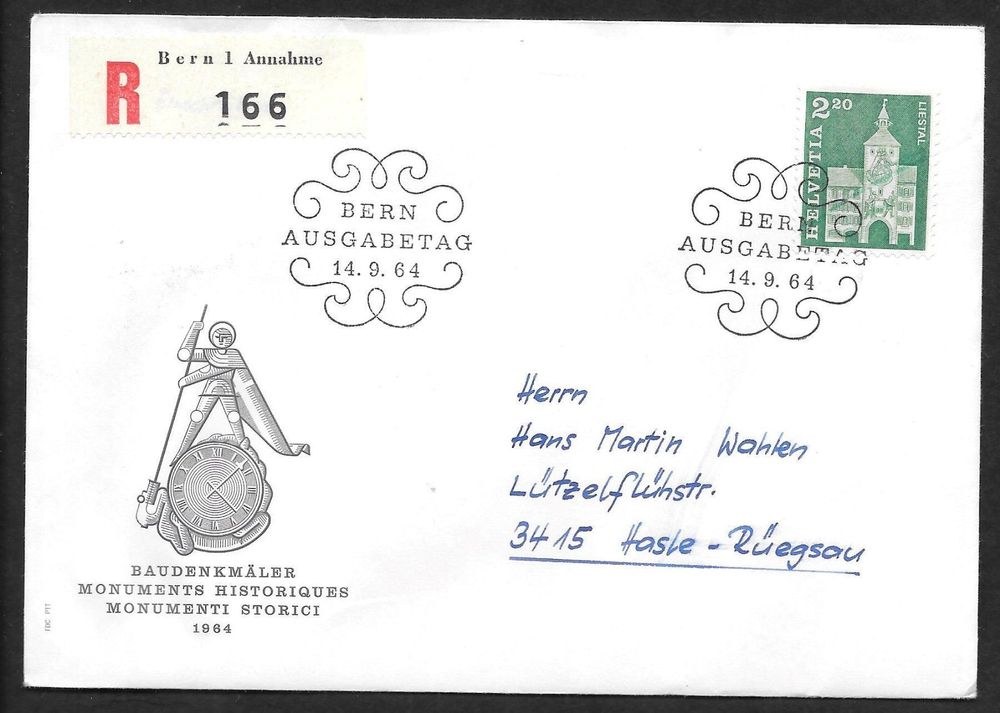 Bern 1 Annahme
R
166
2 20
HELVETIA
LIESTAL
BERN
AUSGABETAG
14.9.64
BERN
AUSGABETAG
14.9.64
Herrn
Hans Martin Wahlen
Lützelflühstr.
3415 Hasle-Rüegsau
BAUDENKMÄLER
MONUMENTS HISTORIQUES
MONUMENTI STORICI
1964
FDC PTT